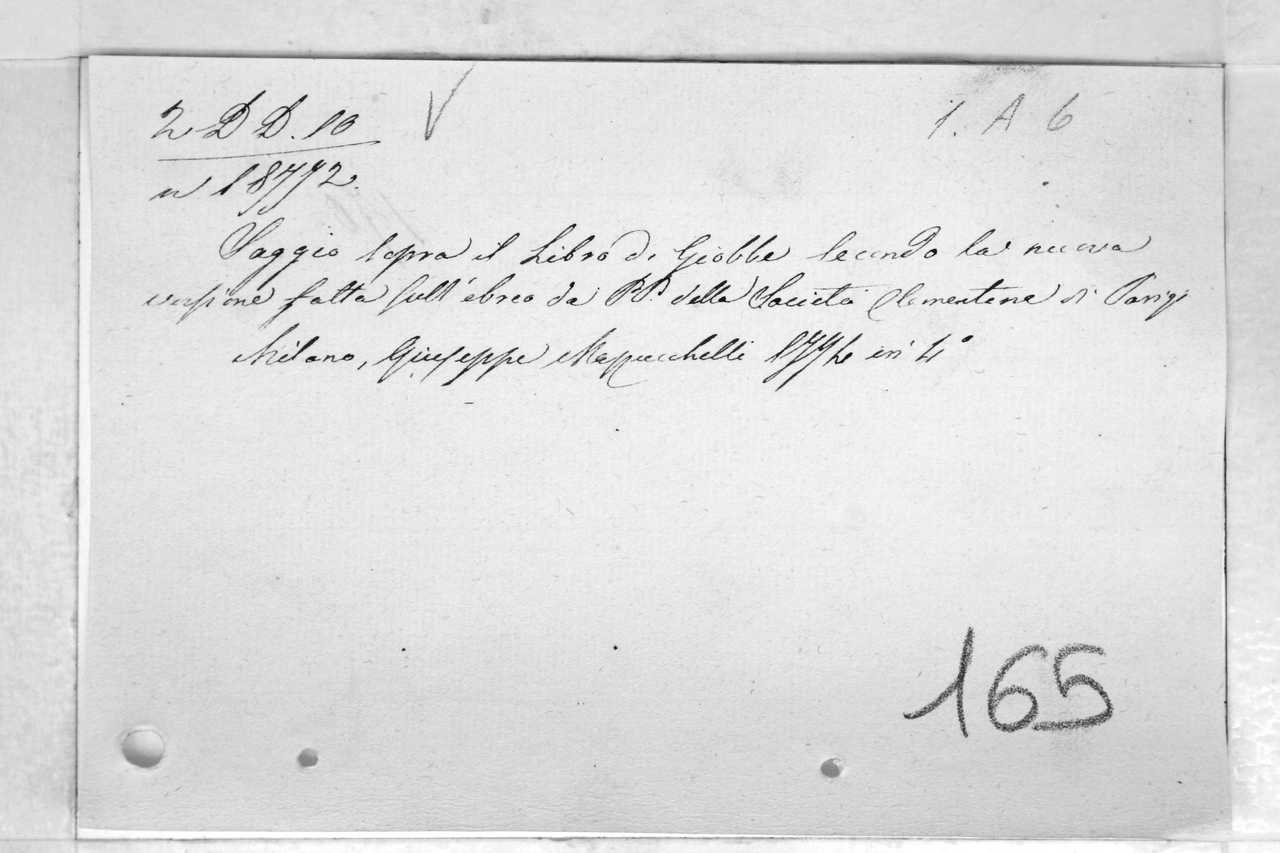 2 D D. 10
1. A 6
n 18772.
Saggio sopra il Libro di Giobbe secondo la nuova
versione fatta sull'ebreo da PP. della Società Clementina di Parigi
Milano, Giuseppe Mazzucchelli 1774 in 4°
165